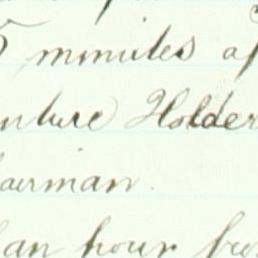 5 minutes af
enture Holder
hairman.
an hour fro